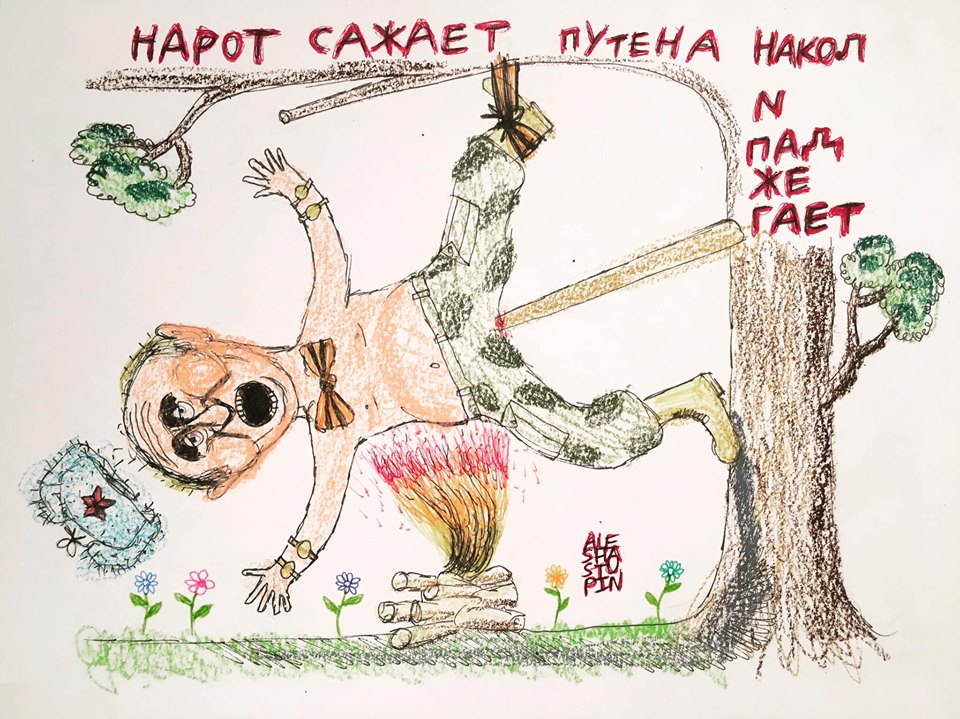 НАРОТ САЖАЕТ ПУТЕНА НАКОЛ
N
ПАД
ЖЕ
ГАЕТ
ALE
SHA
STU
PIN